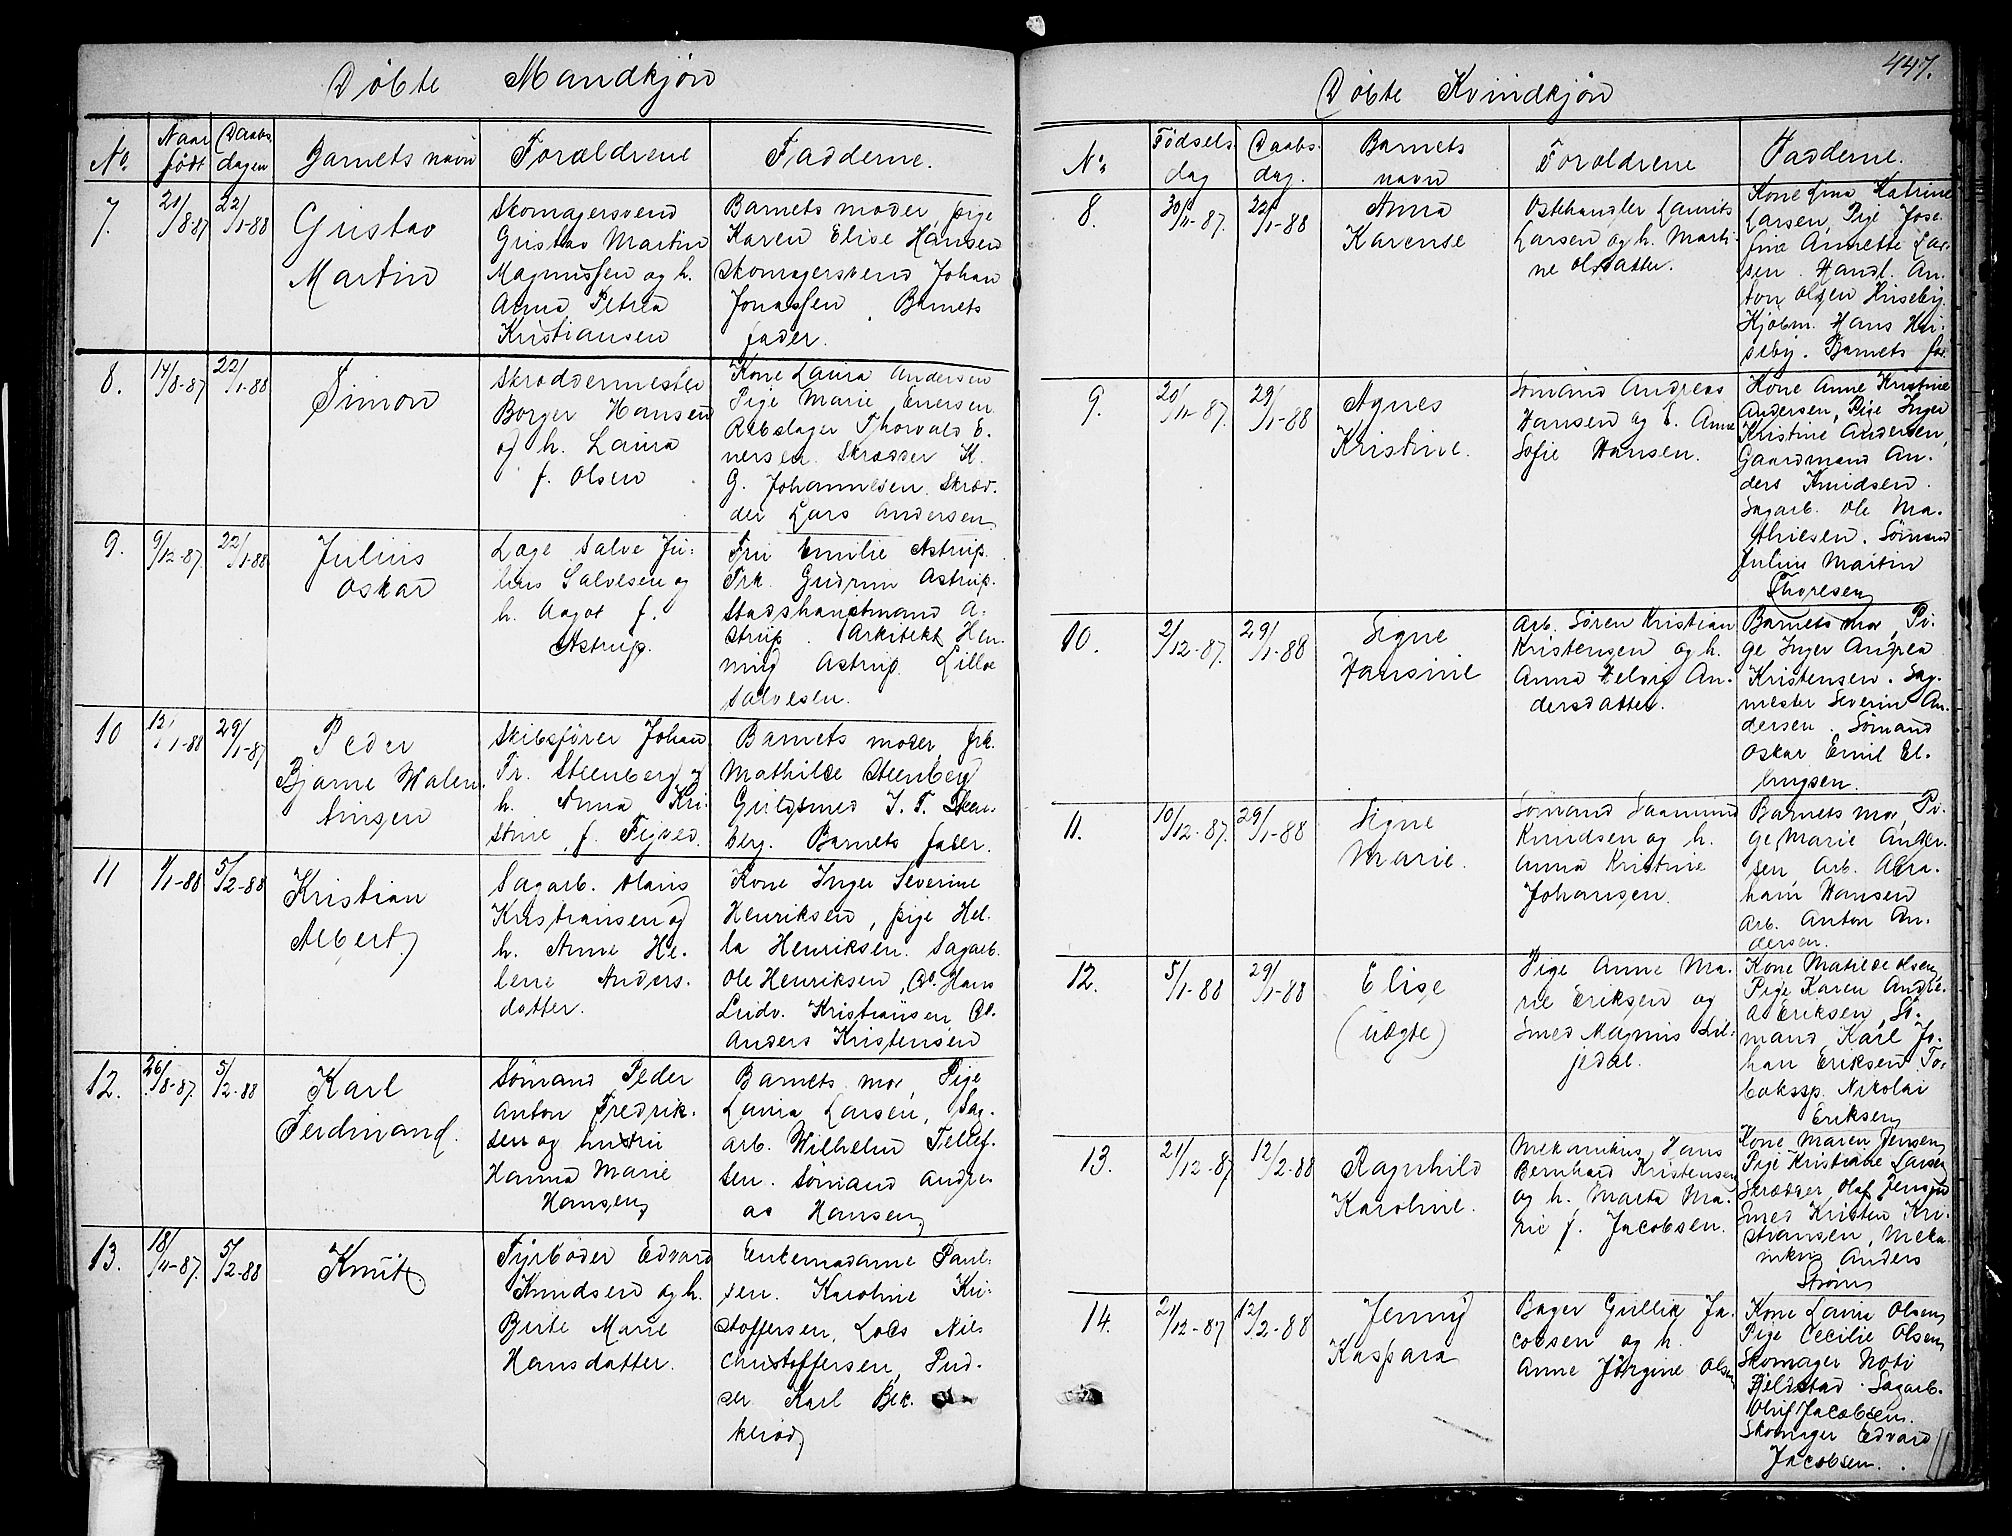 Døbte Mandkjøn
No. Naar født Daabsdagen Barnets navn Forældrene Fadderne.
7. 21/8-87 22/1-88
Gustav
Martin
Skomagersvend
Gustav Martin
Magnussen og h.
Anna Petrea
Kristiansen
Barnets moder, pige
Karen Elise Hansen
Skomagersvend Johan
Jonassen, Barnets
fader.
8. 14/8-87 22/1-88
Simon
Skræddermester
Borger Hansen
og h. Laura
f. Olsen
Kone Laura Andersen
Pige Marie Enersen
Rebslager Thorvald E.
nersen. Skrædder K.
G. Johannesen. Skræd-
der Lars Andersen
9. 9/12-87. 22/1-88
Julius
Oskar
Læge Salve Ju-
lius Salvesen og
h. Aagot f.
Astrup.
Fru Emilie Astrup.
Frk. Gudrun Astrup.
Stadshauptmand A-
strup. Arkitekt Hen-
ning Astrup. Lilla
Salvesen.
10 12/1-88 29/1-87
Peder
Bjarne Walen-
tinsen
Skibsfører Johan
Fr. Steenberg og
h. Anna Kri-
stine, f. Tigved.
Barnets moder, frk.
Mathilde Steenberg
Guldsmed J. F. Steen-
berg. Barnets fader.
11 1/1-88 5/2-88
Kristian
Albert
Sagarb. Olaus
Kristiansen og
h. Anne He-
lene Anders-
datter.
Kone Inger Severine
Henriksen, pige Hel-
la Henriksen. Sagarb.
Ole Henriksen, do. Hans
Ludv. Kristiansen, do.
Anders Kristensen
12. 26/8-87. 5/2-88
Karl
Ferdinand.
Sømand Peder
Anton Fredrik-
sen og hustru
Hanna Marie
Hansen
Barnets mor, Pige
Laura Larsen, Sag-
arb. Wilhelm Tellef-
sen. Sømand Andre-
as Hansen
13. 18/11-87. 5/2-88
Knut
Fyrbøder Edvard
Knudsen og h.
Berte Marie
Hansdatter.
Enkemadame Paul-
sen. Karoline Kri-
stoffersen, Lods Nils
Christoffersen, Pud-
ser Karl Bek-
kerød
447.
Døbte Kvindkjøn
No. Fødselsdag Daabsdag. Barnets navn Forældrene Fadderne.
8. 30/11-87. 22/1-88
Anna
Karense
Ostehandler Laurits
Larsen og h. Marti-
ne Olsdatter.
Kone Lina Katrine
Larsen, Pige Jose-
fine Annette Lar-
sen. Handl. An-
ton Olsen Huseby.
Kjøbm. Hans Hu-
seby. Barnets far.
9. 20/11-87. 29/1-88
Agnes
Kristine.
Sømand Andreas
Hansen og h. Anne
Sofie Hansen.
Kone Anne Kristine
Andersen, Pige Inger
Kristine Andersen,
Gaardmand An-
ders Knudsen.
Sagarb. Ole Ma-
thiesen. Sømand
Julius Martin
Thoresen
10. 2/12-87. 29/1-88
Signe
Hansine
Arb. Søren Kristian
Kristensen og h.
Anna Helvig An-
dersdatter.
Barnets mor, Pi-
ge Inger Andrea
Kristensen. Sag-
mester Severin An-
dersen. Sømand
Oskar Emil El-
lingsen.
11. 10/12-87. 29/1-88
Signe
Marie.
Sømand Saamund
Knudsen og h.
Anna Kristine
Johansen.
Barnets mor, Pi-
ge Marie Ander-
sen, Arb. Abra-
ham Hansen
Arb. Anton An-
dersen.
12. 5/1-88 29/1-88
Elise
(uægte)
Pige Anne Ma-
rie Eriksen og
Smed Magnus Lil-
jedal.
Kone Matilde Olsen,
Pige Karen Andre-
a Eriksen, Sø-
mand Karl Jo-
han Eriksen To-
baksp. Nikolai
Eriksen
13. 21/12-87 12/2-88
Ragnhild
Karoline.
Mekanikus Hans
Bernhard Kristensen
og h. Marta Ma-
rie f. Jacobsen.
Kone Maren Jensen,
Pige Kristiane Larsen
Skrædder Olaf Jensen
Smed Kristen Kri-
stiansen, Meka-
nikus Anders
Strøm
14. 21/12-87 12/2-88
Jenny
Kaspara
Bager Gullik Ja-
cobsen og h.
Anne Jørgine Olsen
Kone Laura Olsen,
Pige Cecilie Olsen,
Skomager
Fjeldstad. Sagarb.
Oluf Jacobsen.
Skomager Edvard
Jacobsen.